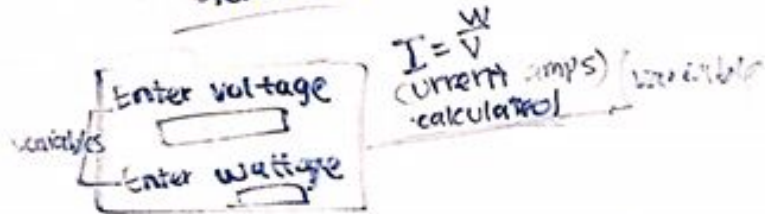 I = W/V
Enter voltage
current amps)
calculated
variables
Enter wattage